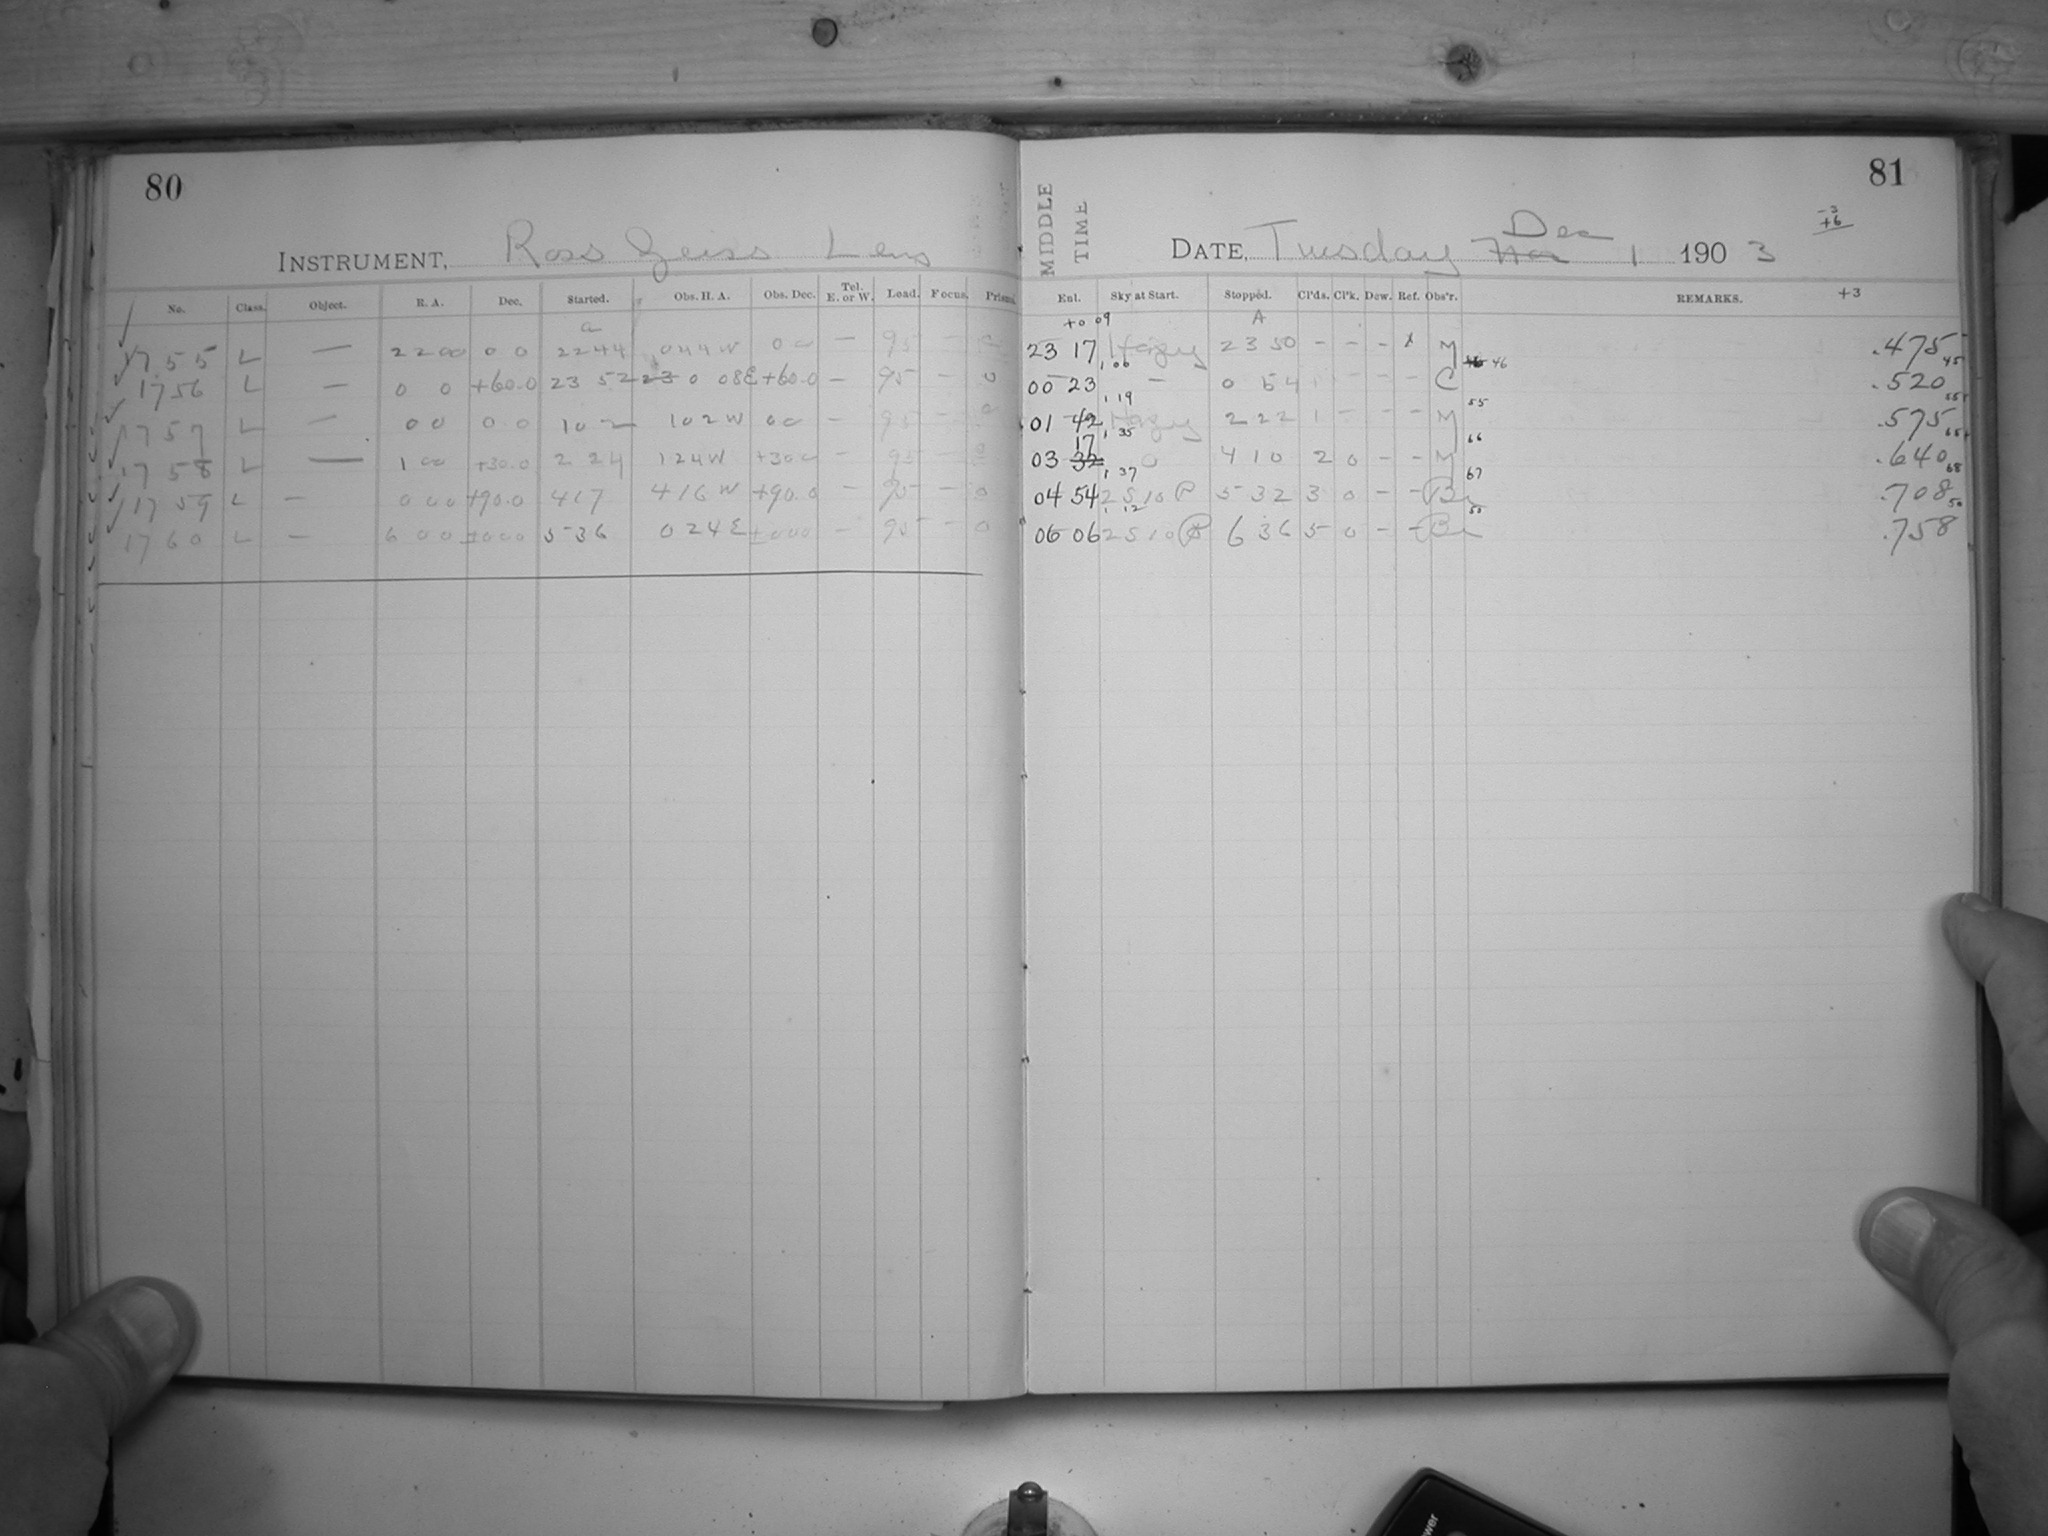 80
INSTRUMENT, Ross Zeiss Lens
No. Class. Object. R. A. Dec. Started. Obs. H. A. Obs. Dec. Tel. E. or W. Load. Focus. Prism.
a
1755 L — 22 00 0 0 22 44 0 44 W 0 0 — 95 — 0
1756 L — 0 0 +60.0 23 52 23 0 08 E +60.0 — 95 — 0
1757 L — 0 0 0.0 1 02 1 02 W 0 0 — 95 — 0
1758 L — 1 00 +30.0 2 24 1 24 W +30 0 — 95 — 0
1759 L — 0 00 +90.0 4 17 4 16 W +90.0 — 95 — 0
1760 L — 6 00 ±000 5 36 0 24 E ±000 — 95 — 0
81
MIDDLE TIME
-3
+6
DATE, Tuesday Dec 1 1903
Ent. Sky at Start. Stopped. Cl'ds. Cl'k. Dew. Ref. Obs'r. REMARKS. +3
+0 09 A
23 17 Hazy 23 50 - - - x M .475
1 06 46 45
00 23 - 0 54 1 - - - C .520
1 19 55 55
01 42 Hazy 2 22 1 - - - M .575
17 1 35 66 65
03 32 0 4 10 2 0 - - M .640
1 37 67 68
04 54 2 5 10 P 5 32 3 0 - - Br .708
1 12 50 50
06 06 2 5 10 P 6 36 5 0 - - Br .758